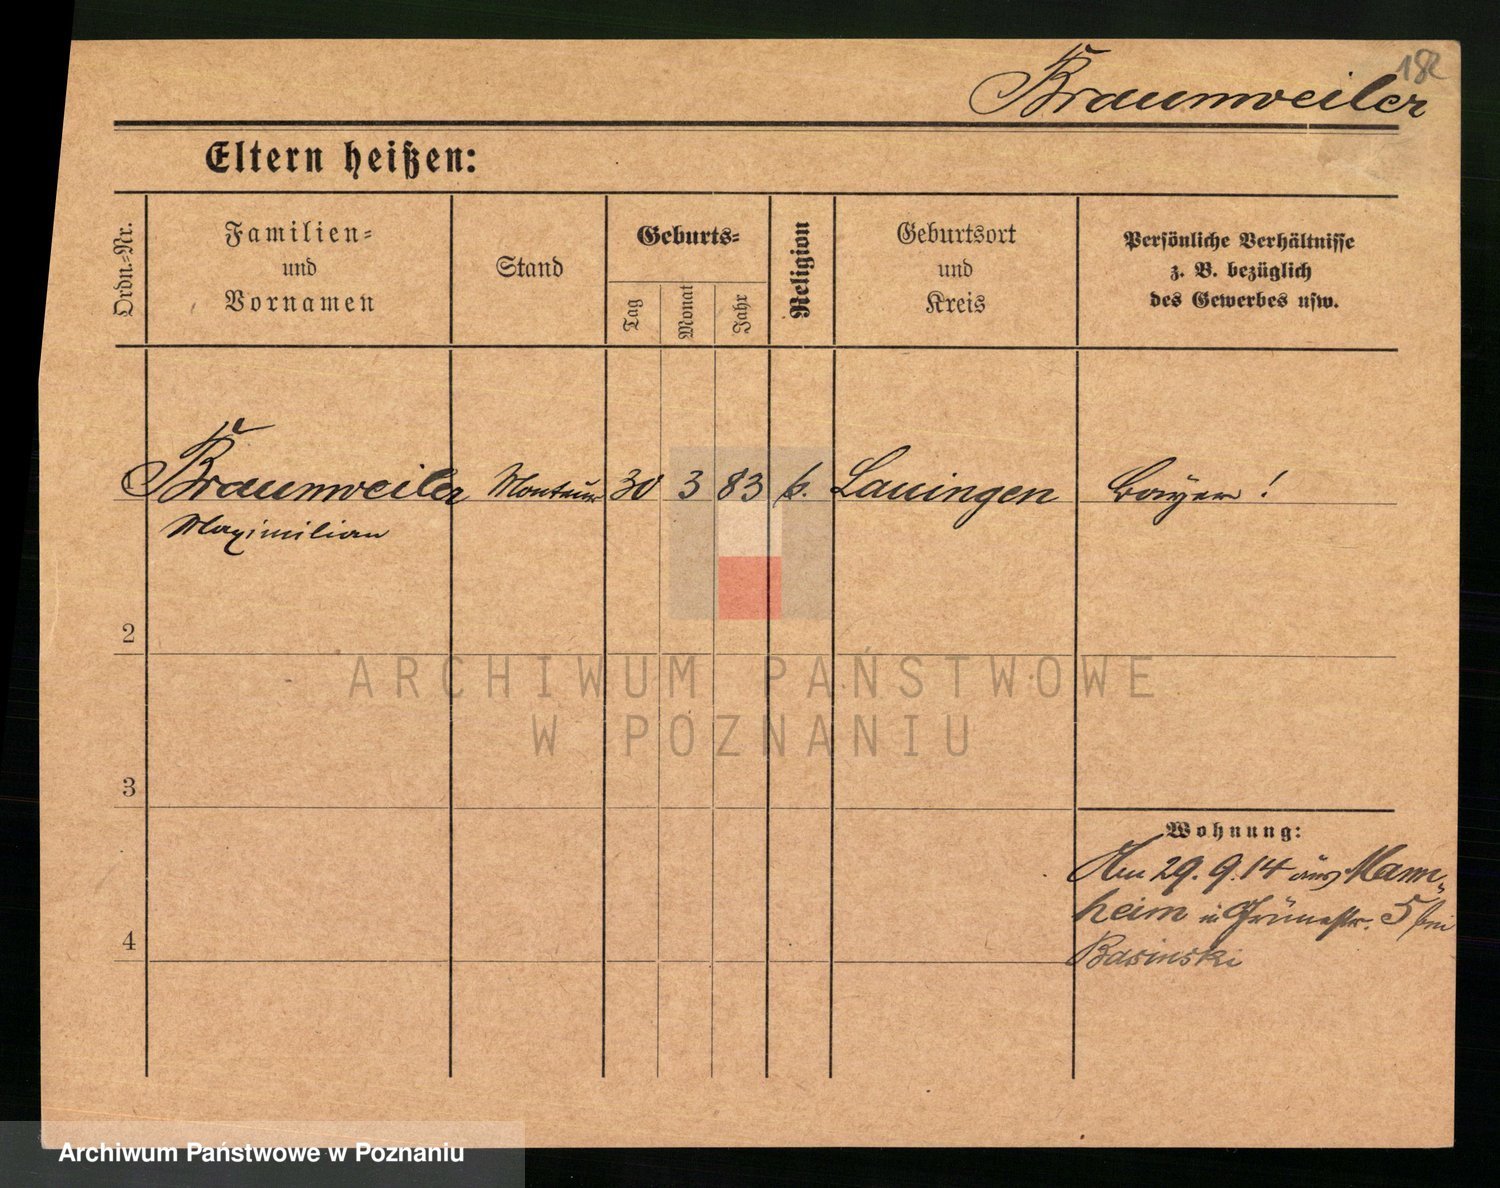 182
Braunweiler
Eltern heißen:
Ordn.-Nr.
Familien-
und
Vornamen
Stand
Geburts-
Tag
Monat
Jahr
Religion
Geburtsort
und
Kreis
Persönliche Verhältnisse
z. B. bezüglich
des Gewerbes usw.
1 Braunweiler Monteur 30 3 83 k. Lauingen Bayer !
Maximilian
2
3
4
Wohnung:
Am 29.9.14 aus Mann-
heim in Grünestr. 5 bei
Basinski
ARCHIWUM PAŃSTWOWE
W POZNANIU
Archiwum Państwowe w Poznaniu